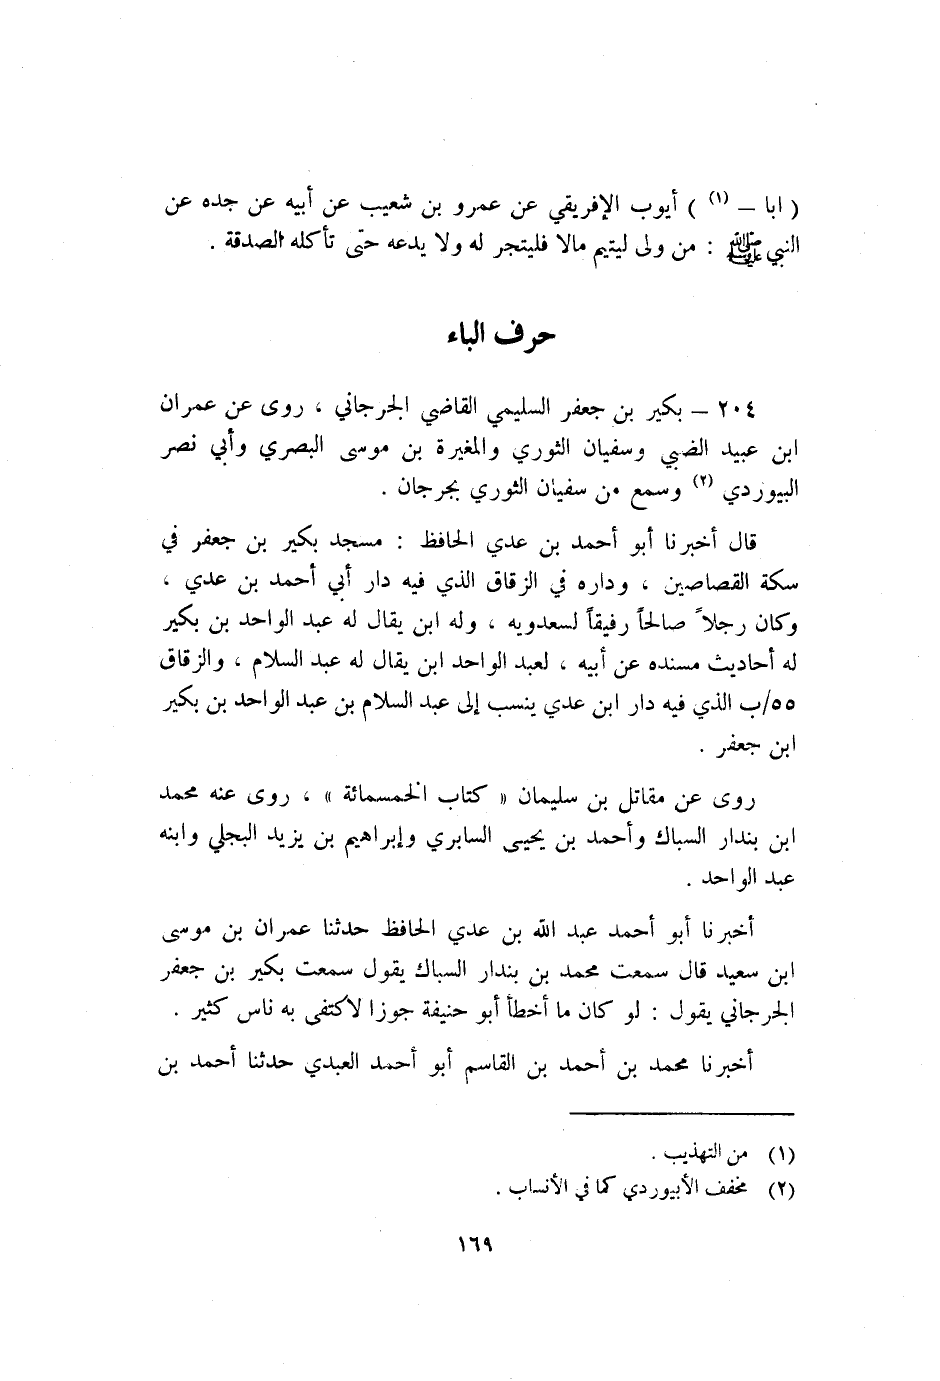 ( ابا ـ (١) ) أيوب الإفريقي عن عمرو بن شعيب عن أبيه عن جده عن
النبي ﷺ : من ولى ليتيم مالا فليتجر له ولا يدعه حتى تأكله الصدقة .
حرف الباء
٢٠٤ ـ بكير بن جعفر السليمي القاضي الجرجاني ، روى عن عمران
ابن عبيد الضبي وسفيان الثوري والمغيرة بن موسى البصري وأبي نصر
البيوردي (٢) وسمع من سفيان الثوري بجرجان .
قال أخبرنا أبو أحمد بن عدي الحافظ : مسجد بكير بن جعفر في
سكة القصاصين ، وداره في الزقاق الذي فيه دار أبي أحمد بن عدي ،
وكان رجلاً صالحاً رفيقاً لسعدويه ، وله ابن يقال له عبد الواحد بن بكير
له أحاديث مسنده عن أبيه ، لعبد الواحد ابن يقال له عبد السلام ، والزقاق
٥٥/ب الذي فيه دار ابن عدي ينسب إلى عبد السلام بن عبد الواحد بن بكير
ابن جعفر .
روى عن مقاتل بن سليمان « كتاب الخمسمائة » ، روى عنه محمد
ابن بندار السباك وأحمد بن يحيى السابري وإبراهيم بن يزيد البجلي وابنه
عبد الواحد .
أخبرنا أبو أحمد عبد الله بن عدي الحافظ حدثنا عمران بن موسى
ابن سعيد قال سمعت محمد بن بندار السباك يقول سمعت بكير بن جعفر
الجرجاني يقول : لو كان ما أخطأ أبو حنيفة جوزا لاكتفى به ناس كثير .
أخبرنا محمد بن أحمد بن القاسم أبو أحمد العبدي حدثنا أحمد بن
(١) من التهذيب .
(٢) مخفف الأبيوردي كما في الأنساب .
١٦٩